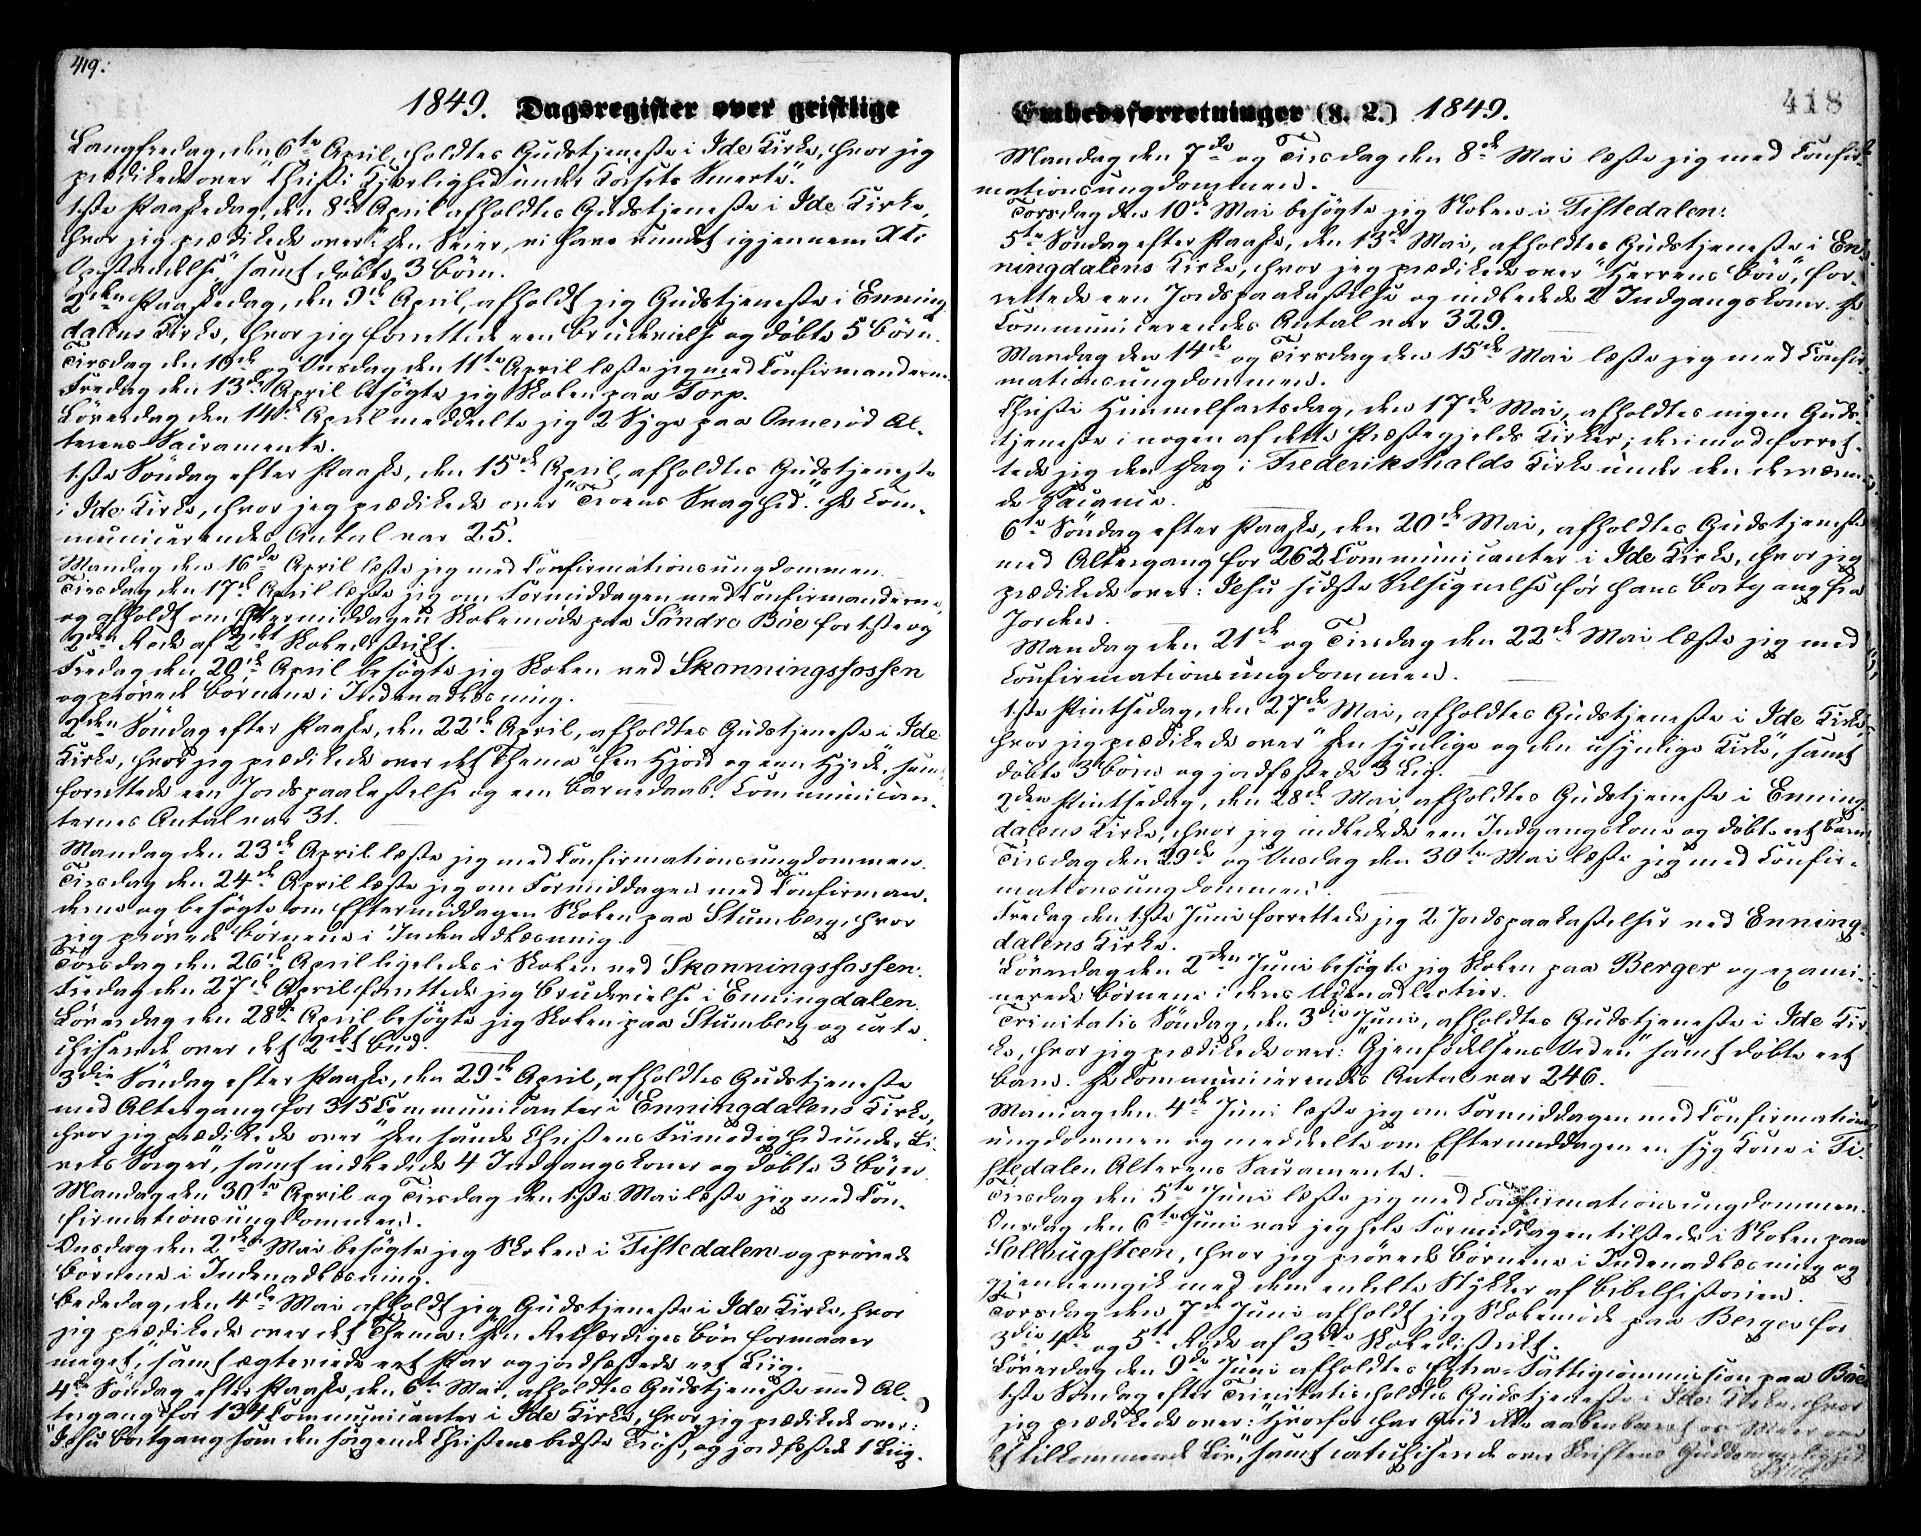 419.
1849. Dagsregister over geistlige
Langfredag, den 6te April, holdtes Gudstjeneste i Ide Kirke, hvor jeg
prædikede over "Christi Kjærlighed under Korsets Smerte".
1ste Paaskedag, den 8de April afholdtes Gudstjeneste i Ide Kirke,
hvor jeg prædikede over: "Den Seier, vi have vundet igjennem Xti
Opstandelse" samt døbte 3 Børn.
2den Paaskedag, den 9de April, afholdt jeg Gudstjeneste i Enning-
dalens Kirke, hvor jeg forrettede een Brudevielse og døbte 5 Børn.
Tirsdag den 10de og Onsdag den 11te April læste jeg med Confirmanderne.
Fredag den 13de April besøgte jeg Skolen paa Torp.
Løverdag den 14de April meddeelte jeg 2 Syge paa Onnerød Al-
terens Sacramente.
1ste Søndag efter Paaske, den 15de April, afholdtes Gudstjeneste
i Ide Kirke, hvor jeg prædikede over "Troens Svaghed." De Com-
municerendes Antal var 25.
Mandag den 16de April læste jeg med Confirmationsungdommen.
Tirsdag den 17de April læste jeg om Formiddagen med Confirmanderne,
og afholdt om Eftermiddagen Skolemøde paa Søndre Bøe for 1ste og
2den Rode af 2det Skoledistrict.
Fredag den 20de April besøgte jeg Skolen ved Skonningsfossen
og prøvede Børnene i Indenadlæsning.
2den Søndag efter Paaske, den 22de April, afholdtes Gudstjeneste i Ide
Kirke, hvor jeg prædikede over det Thema "Een Hjord og een Hyrde", samt
forrettede een Jordspaakastelse og een Barnedaab. Communican-
ternes Antal var 31.
Mandag den 23de April læste jeg med Confirmationsungdommen.
Tirsdag den 24de April læste jeg om Formiddagen med Confirman-
derne og besøgte om Eftermiddagen Skolen paa Stumberg, hvor
jeg prøvede Børnene i Indenadlæsning.
Torsdag den 26de April ligeledes i Skolen ved Skonningsfossen.
Fredag den 27de April forrettede jeg Brudevielse i Enningdalen.
Løverdag den 28de April besøgte jeg Skolen paa Stumberg og cate-
chiserede over det 2det Bud.
3die Søndag efter Paaske, den 29de April, afholdtes Gudstjeneste
med Altergang for 315 Communicanter i Enningdalens Kirke,
hvor jeg prædikede over "Den sande Christens Frimodighed under Li-
vets Sorger", samt indledede 4 Indgangskoner og døbte 3 Børn.
Mandag den 30te April og Tirsdag den 1ste Mai læste jeg med Con-
firmationsungdommen.
Onsdag den 2den Mai besøgte jeg Skolen i Tistedalen og prøvede
Børnene i Indenadlæsning.
Bededag, den 4de Mai afholdt jeg Gudstjeneste i Ide Kirke, hvor
jeg prædikede over det Thema: "Den Retfærdiges Bøn formaaer
meget," samt ægteviede eet Par og jordfæstede eet Liig.
4de Søndag efter Paaske, den 6te Mai, afholdtes Gudstjeneste med Al-
tergang for 134 Communicanter i Ide Kirke, hvor jeg prædikede over:
"Jesu Bortgang som den sørgende Christens bedste Trøst", og jordfæstede 1 Liig.
Embedsforretninger (§. 2.) 1849.
418
Mandag den 7de og Tirsdag den 8de Mai læste jeg med Confir-
mationsungdommen.
Torsdag den 10de Mai besøgte jeg Skolen i Tistedalen.
5te Søndag efter Paaske, den 13de Mai, afholdtes Gudstjeneste i En-
ningdalens Kirke, hvor jeg prædikede over "Herrens Bøn", for-
rettede een Jordspaakastelse og indledede 2 Indgangskoner. De
Communicerendes Antal var 329.
Mandag den 14de og Tirsdag den 15de Mai læste jeg med Confir-
mationsungdommen.
Christi Himmelfartsdag, den 17de Mai, afholdtes ingen Guds-
tjeneste i nogen af dette Præstegjelds Kirker; derimod forret-
tede jeg den Dag i Frederikshalds Kirke under den derværen-
de Vacance.
6te Søndag efter Paaske, den 20de Mai, afholdtes Gudstjeneste
med Altergang for 262 Communicanter i Ide Kirke, hvor jeg
prædikede over: Jesu sidste Velsignelse før hans Bortgang fra
Jorden.
Mandag den 21de og Tirsdag den 22de Mai læste jeg med
Confirmationsungdommen.
1ste Pintsedag, den 27de Mai, afholdtes Gudstjeneste i Ide Kirke,
hvor jeg prædikede over "den synlige og den usynlige Kirke", samt
døbte 3 Børn og jordfæstede 3 Liig.
2den Pintsedag, den 28de Mai, afholdtes Gudstjeneste i Enning-
dalens Kirke, hvor jeg indledede een Indgangskone og døbte eet Barn.
Tirsdag den 29de og Onsdag den 30te Mai læste jeg med Confir-
mationsungdommen.
Fredag den 1ste Juni forrettede jeg 2 Jordspaakastelser ved Enning-
dalens Kirke.
Løverdag den 2den Juni besøgte jeg Skolen paa Berger og exami-
nerede Børnene i deres Udenadlectier.
Trinitatis Søndag, den 3die Juni, afholdtes Gudstjeneste i Ide Kir-
ke, hvor jeg prædikede over: "Gjenfødelsens Orden" samt døbte eet
Barn. De Communicerendes Antal var 246.
Mandag den 4de Juni læste jeg om Formiddagen med Confirmations-
ungdommen og meddeelte om Eftermiddagen en syg Kone i Ti-
stedalen Alterens Sacramente.
Tirsdag den 5te Juni læste jeg med Confirmationsungdommen.
Onsdag den 6te Juni var jeg hele Formiddagen tilstede i Skolen paa
Solbugsteen, hvor jeg prøvede Børnene i Indenadlæsning og
gjennemgik med dem enkelte Stykker af Bibelhistorien.
Torsdag den 7de Juni afholdt jeg Skolemøde paa Berger for
3die 4de og 5te Rode af 3die Skoledistrict.
Løverdag den 9de Juni afholdtes Extra-Fattigcommission paa Bøe.
1ste Søndag efter Trinitatis holdtes Gudstjeneste i Ide Kirke, hvor
jeg prædikede over: "Hvorfor har Gud ikke aabenbaret os Mere om
det tilkommende Liv", samt catechiserede over Skriftens Guddommelighed.